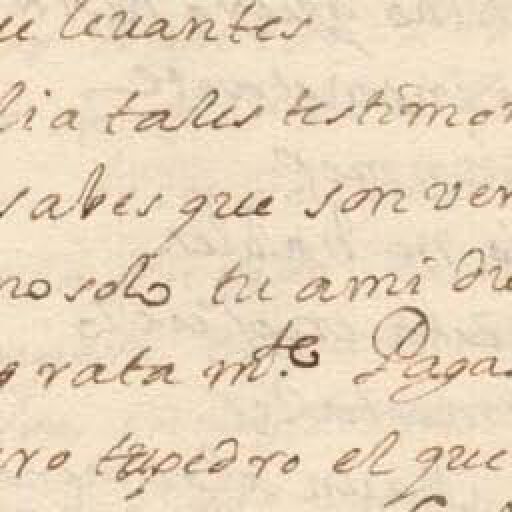 ue levantes
lia tales testimon
sabes que son ver
no solo tu a mi due
grata m.te Pagas
ro tu pedro el que